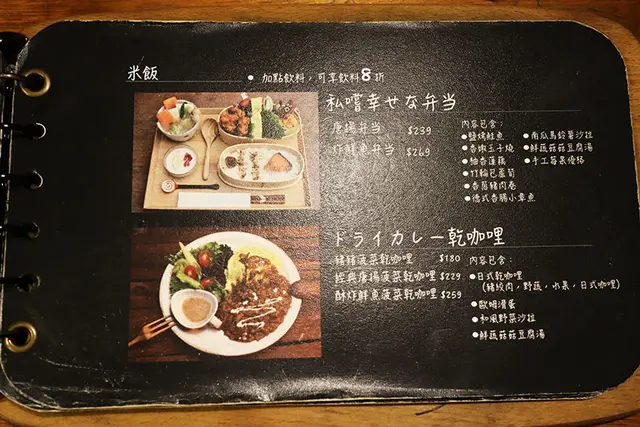 米飯
● 加點飲料，可享飲料8折
私嚐幸せな弁当
唐揚弁当 $239
炸鮭魚弁当 $269
內容包含：
●鹽烤鮭魚
●香嫩玉子燒
●柚香蓮藕
●竹輪芭蘆筍
●香蔥豬肉卷
●德式香腸小章魚
●南瓜馬鈴薯沙拉
●鮮蔬菇菇豆腐湯
●手工莓果優格
ドライカレー乾咖哩
豬豬菠菜乾咖哩 $180
經典唐揚菠菜乾咖哩 $229
酥炸鮮魚菠菜乾咖哩 $259
內容包含：
●日式乾咖哩
(豬絞肉，野蔬，水果，日式咖哩)
●歐姆滑蛋
●和風野菜沙拉
●鮮蔬菇菇豆腐湯